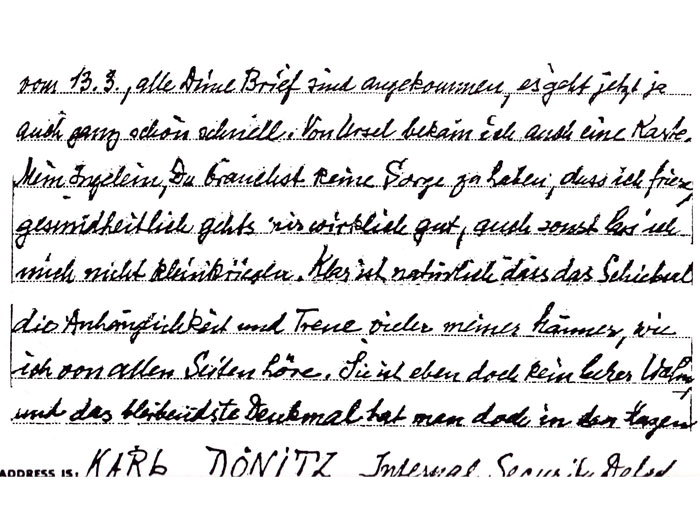 vom 13.3., alle Deine Brief sind angekommen, es geht jetzt ja
auch ganz schön schnell. Von Ursel bekam ich auch eine Karte.
Mein Ingelein, Du brauchst keine Sorge zu haben, dass ich frier,
gesundheitlich gehts mir wirklich gut, auch sonst lass ich
mich nicht kleinkriegen. Klar ist natürlich dass das Schicksal
die Anhänglichkeit und Treue vieler meiner Männer, wie
ich von allen Seiten höre. Sie ist eben doch kein leerer Wahn,
und das bleibendste Denkmal hat man doch in den Herzen
ADDRESS IS: KARL DÖNITZ Internal Security